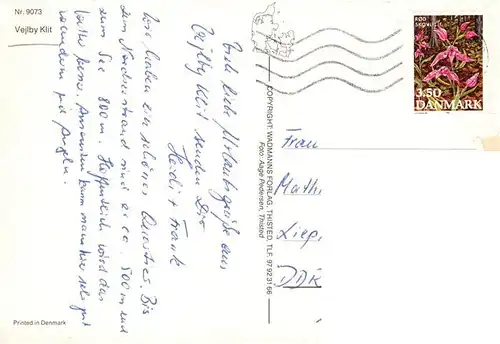 Nr. 9073
Vejlby Klit
Viele liebe Urlaubsgrüße aus
Vejlby Klit senden Dir
Heidi + Frank
Wir haben ein schönes Quartier. Bis
zum Nordseestrand sind es ca. 500 m und
zum See 800 m. Hoffentlich wird das
Wetter besser. Ansonsten kann man hier sehr gut
wandern und Angeln.
Printed in Denmark
COPYRIGHT: WADMANNS FORLAG, THISTED. TLF. 97 92 31 66
Foto: Aage Pedersen, Thisted
RØD
SKOVLILJE
3.50 DANMARK
Frau
Math
Lieg
DDR